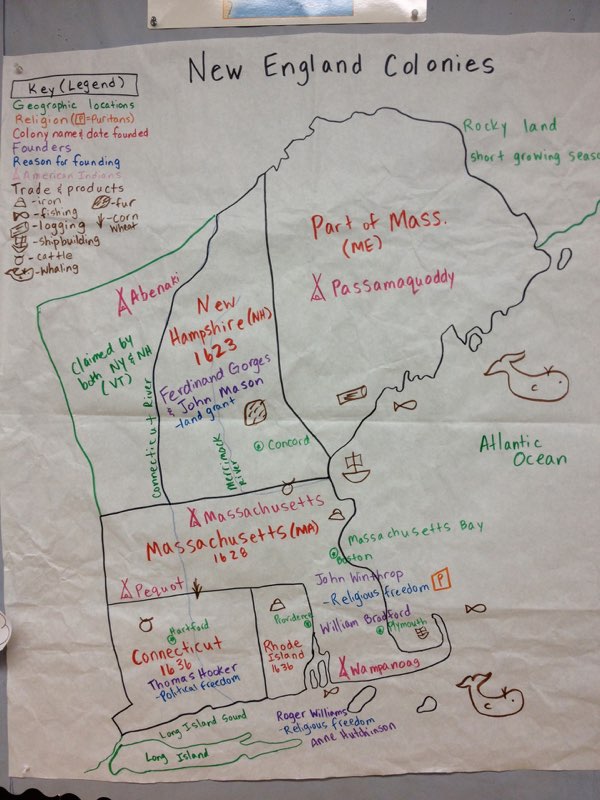 New England Colonies
Key (Legend)
Geographic locations
Religion (P=Puritans)
Colony name & date founded
Founders
Reason for founding
American Indians
Trade & products
-iron
-fur
-fishing
-corn
wheat
-logging
-shipbuilding
-cattle
-whaling
Rocky land
short growing seaso
Part of Mass.
(ME)
Passamaquoddy
Abenaki
New
Hampshire (NH)
1623
Claimed by
both NY & NH
(VT)
Ferdinand Gorges
& John Mason
-land grant
Connecticut River
Merrimack
River
Concord
Atlantic
Ocean
Massachusetts
Massachusetts (MA)
1628
Massachusetts Bay
Boston
John Winthrop
-Religious freedom P
Pequot
William Bradford
Plymouth
Hartford
Providence
Connecticut
1636
Rhode
Island
1636
Thomas Hooker
-Political freedom
Wampanoag
Long Island Sound
Roger Williams
-Religious freedom
Anne Hutchinson
Long Island